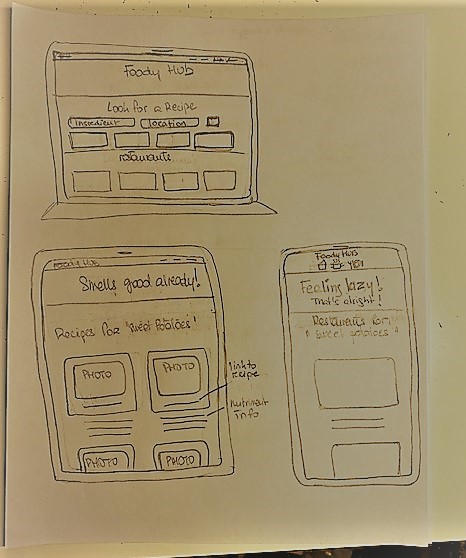 Foody Hub
Look for a Recipe
Ingredient
location
restaurants
Foody Hub
Smells good already!
Recipes for "Sweet Potatoes"
PHOTO
PHOTO
link to recipe
Nutriment Info
PHOTO
PHOTO
Foody Hub
Feeling lazy!
That's alright!
Restaurants for
"Sweet potatoes"